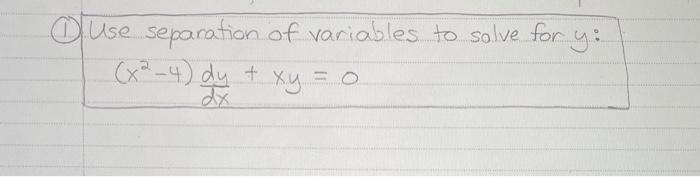 ① Use separation of variables to solve for y:
(x²-4) dy/dx + xy = 0